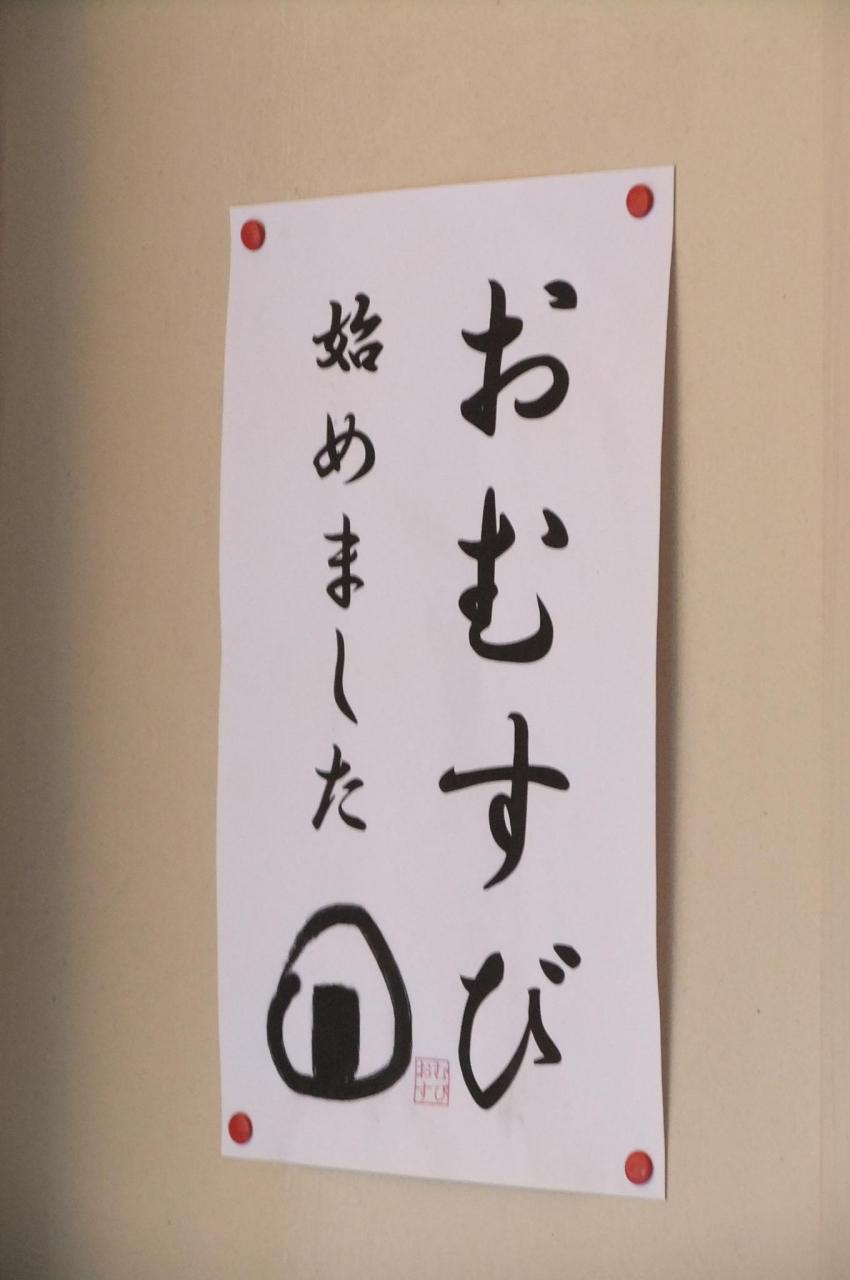 おむすび
始めました
おむすび